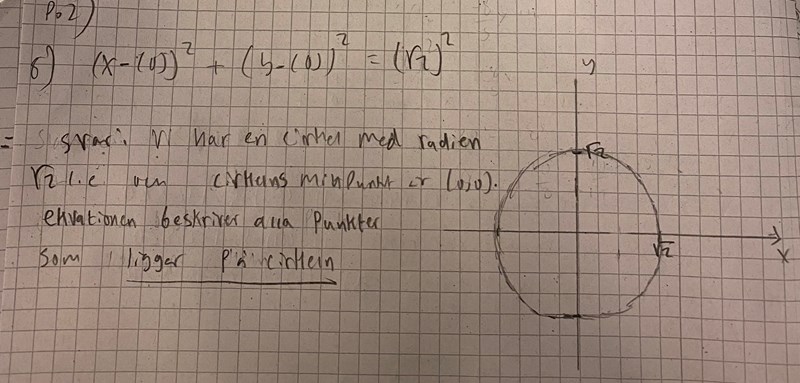 P.2)
b) (x-(0))² + (y-(0))² = (√2)²
y
= svar: Vi har en cirkel med radien
√2 l.e och cirkelns mittpunkt är (0,0).
ekvationen beskriver alla Punkter
som ligger på cirkeln
√2
√2
x